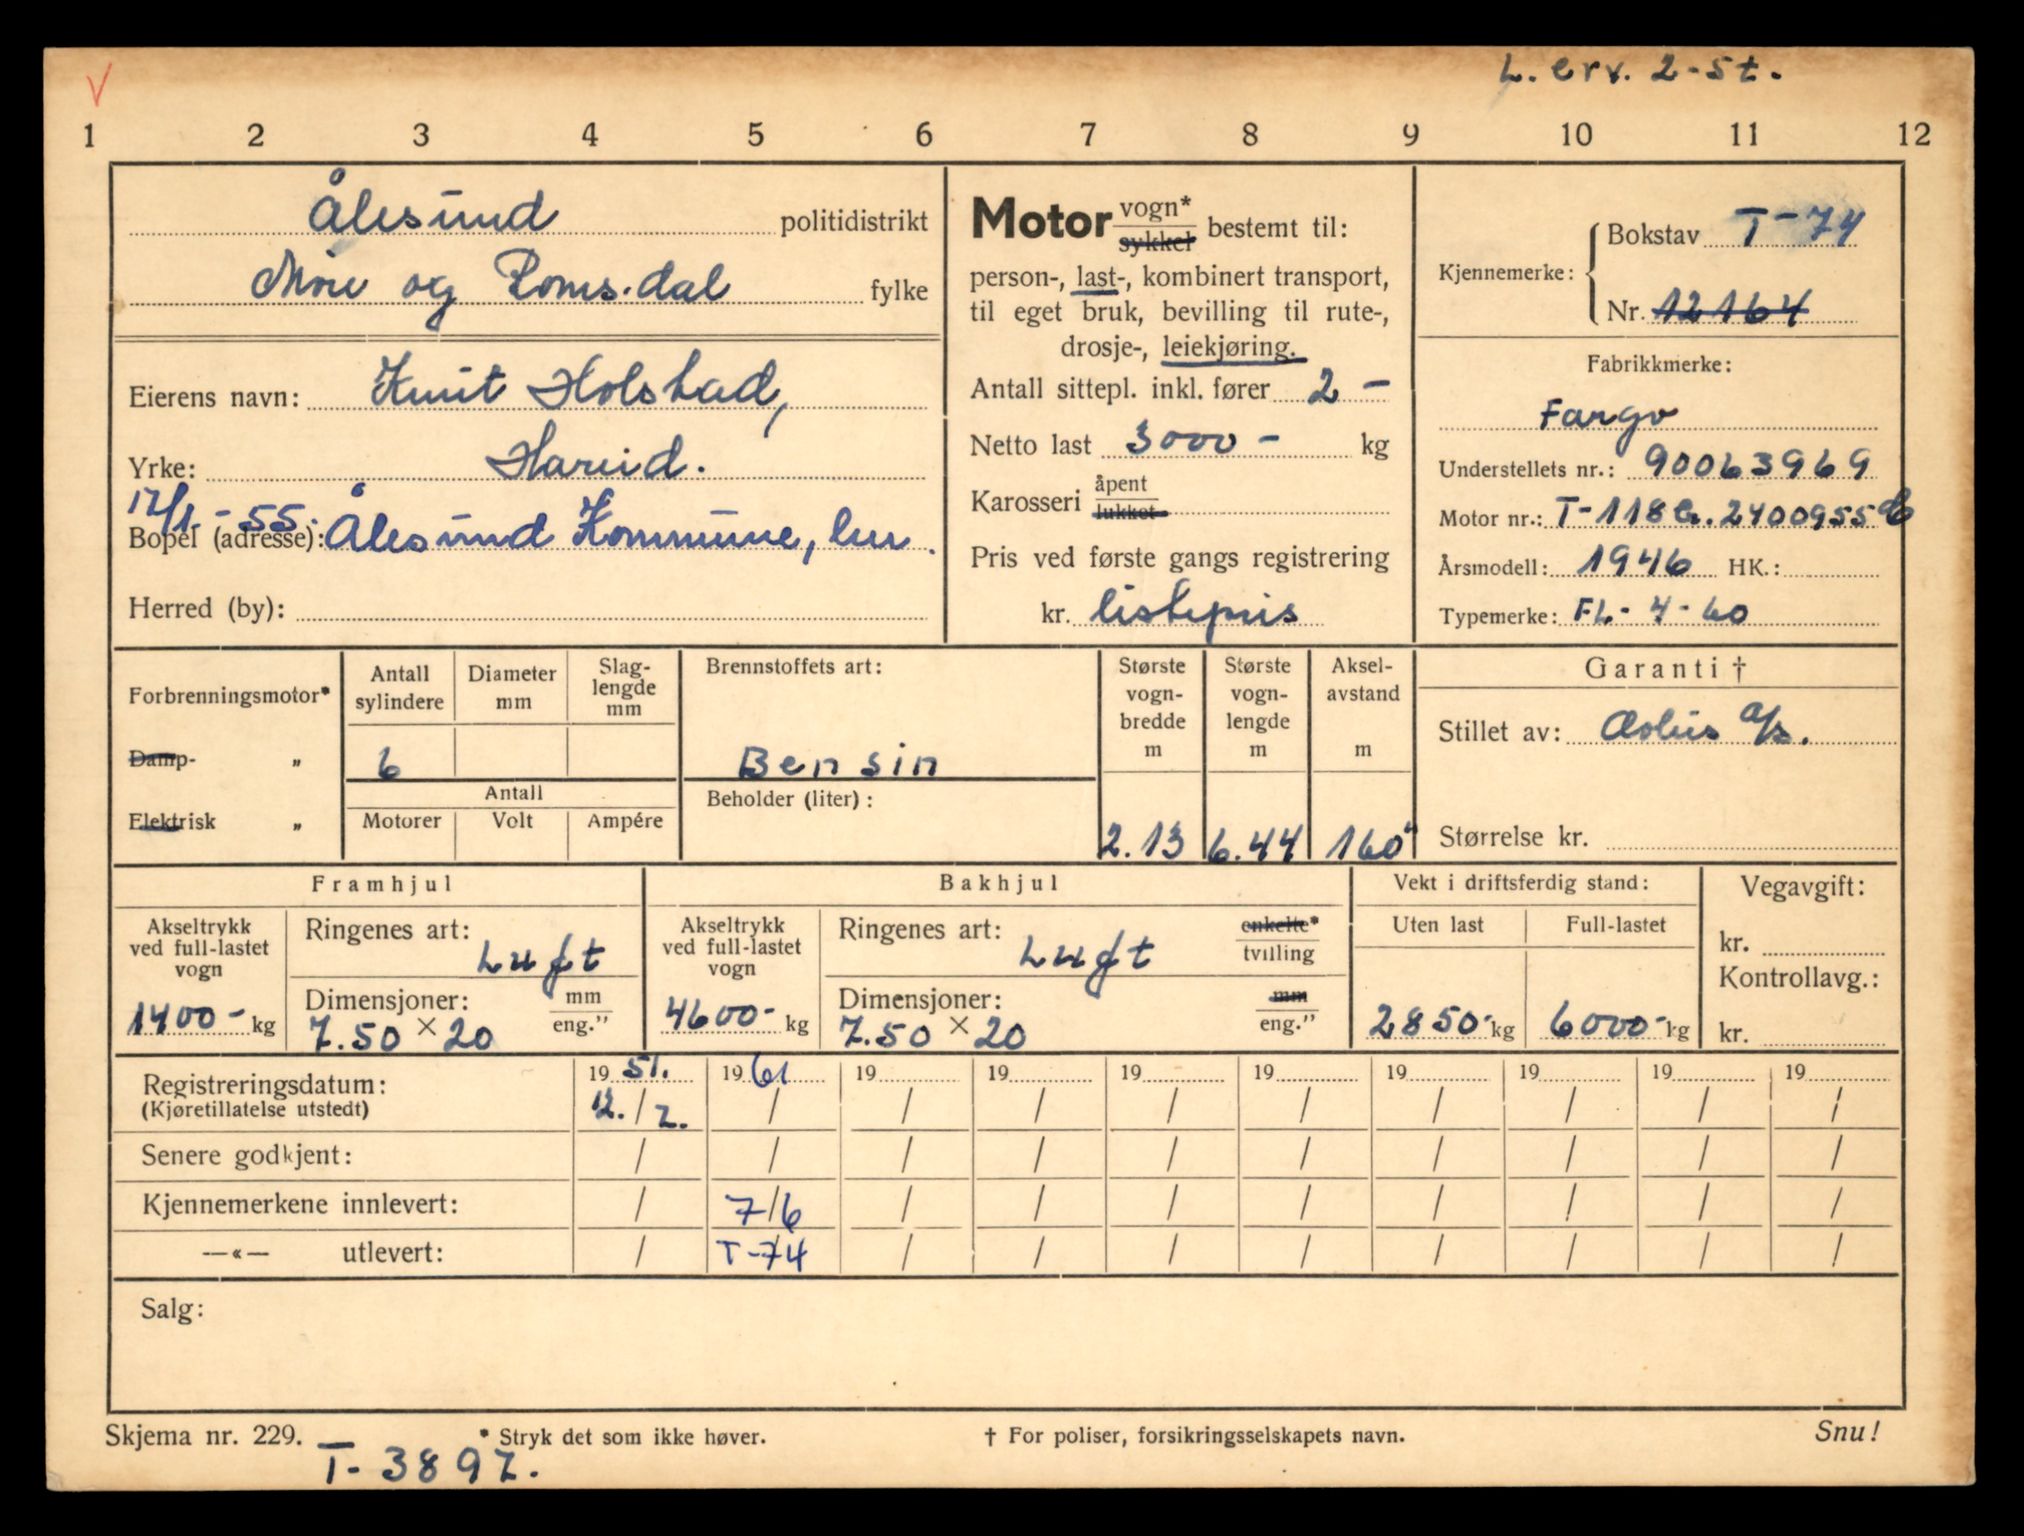 L. erv. 2-st.
1 2 3 4 5 6 7 8 9 10 11 12
Ålesund politidistrikt
Møre og Romsdal fylke
Eierens navn: Knut Holstad,
Yrke: Hareid.
12/1 - 55.
Bopel (adresse): Ålesund Kommune, her.
Herred (by):
Motor vogn* sykkel bestemt til:
person-, last-, kombinert transport,
til eget bruk, bevilling til rute-,
drosje-, leiekjøring.
Antall sittepl. inkl. fører 2 -
Netto last 3000 - kg
Karosseri åpent lukket
Pris ved første gangs registrering
kr. listepris
Kjennemerke: Bokstav T-74
Nr. 12164
Fabrikkmerke:
Fargo
Understellets nr.: 90063969
Motor nr.: T-118 2400955
Årsmodell: 1946 HK.:
Typemerke: FL-4-60
Forbrenningsmotor*
Damp- „
Elektrisk „
Antall sylindere
Diameter mm
Slag-lengde mm
6
Antall
Motorer Volt Ampére
Brennstoffets art:
Bensin
Beholder (liter):
Største vogn-bredde m
2.13
Største vogn-lengde m
6.44
Aksel-avstand m
160"
Garanti †
Stillet av: Æolus a/s.
Størrelse kr.
Framhjul
Akseltrykk ved full-lastet vogn
1400- kg
Ringenes art: Luft
Dimensjoner: mm eng."
7.50 × 20
Bakhjul
Akseltrykk ved full-lastet vogn
4600- kg
Ringenes art: Luft enkelte* tvilling
Dimensjoner: mm eng."
7.50 × 20
Vekt i driftsferdig stand:
Uten last Full-lastet
2850- kg 6000- kg
Vegavgift:
kr.
Kontrollavg.:
kr.
Registreringsdatum: 19 51. 19 61 19 19 19 19 19 19 19 19
(Kjøretillatelse utstedt) 12./2. / / / / / / / / /
Senere godkjent: / / / / / / / / / /
Kjennemerkene innlevert: / 7/6 / / / / / / / /
—«— utlevert: / T-74 / / / / / / / /
Salg:
Skjema nr. 229. * Stryk det som ikke høver. † For poliser, forsikringsselskapets navn. Snu!
T-3897.